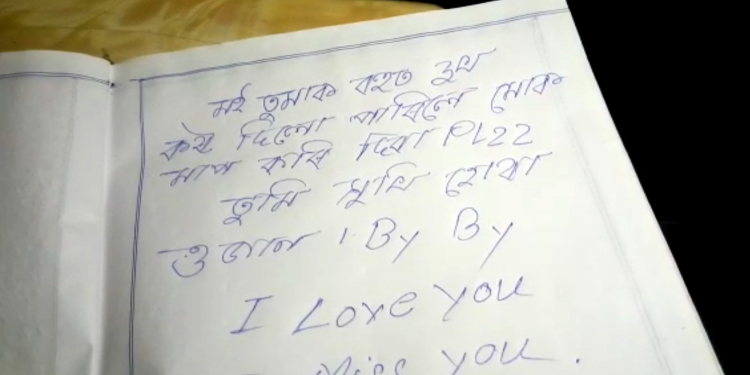 মই তুমাক বহুত দুখ
কষ্ট দিলো পাৰিলে মোক
মাপ কৰি দিবা PLZZ
তুমি সুখি হোৱা
ও জান । By By
I Love you
Miss you .